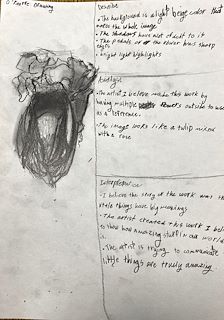 O'Keeffe Drawing
Describe
• The background is a light beige color that
across the whole image
• The shadows have a lot of dust to it
• The pedals of the flower have sharp
edges
• bright light highlights
Analyze
• The artist I believe made this work by
having multiple flowers outside to use
as a reference.
• The image looks like a tulip mixed
with a rose
Interpretation
• I believe the story of the work was that
little things have big meanings
• The artist created this work I believe
to show how amazing stuff in our world
is.
• The artist is trying to communicate
little things are truely amazing